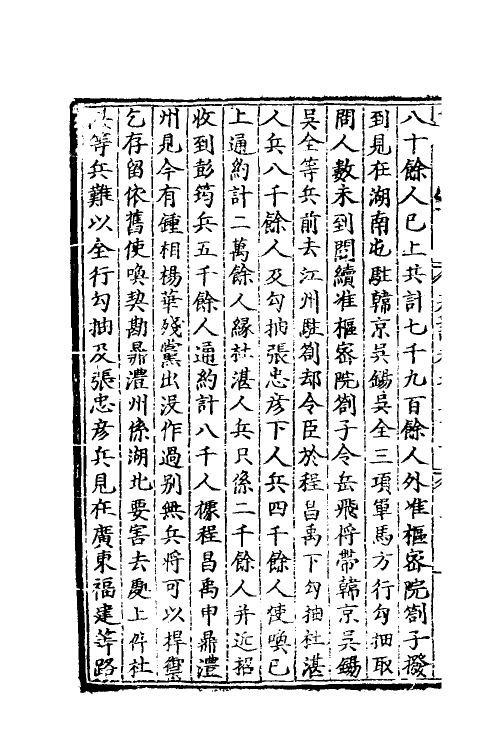 八十餘人已上共計七千九百餘人外准樞密院劄子撥
到見在湖南屯駐韓京吳錫吳全三項軍馬方行勾抽取
問人數未到間續准樞密院劄子令岳飛將帶韓京吳錫
吳全等兵前去江州駐劄却令臣於程昌禹下勾抽杜湛
人兵八千餘人及勾抽張忠彦下人兵四千餘人使喚已
上通約計二萬餘人縁杜湛人兵只係二千餘人并近招
收到彭筠兵五千餘人通約計八千人據程昌禹申鼎澧
州見今有鍾相楊華殘黨出沒作過别無兵將可以捍禦
乞存留依舊使喚契勘鼎澧州係湖北要害去處上件杜
等兵難以全行勾抽及張忠彦兵見在廣東福建等路